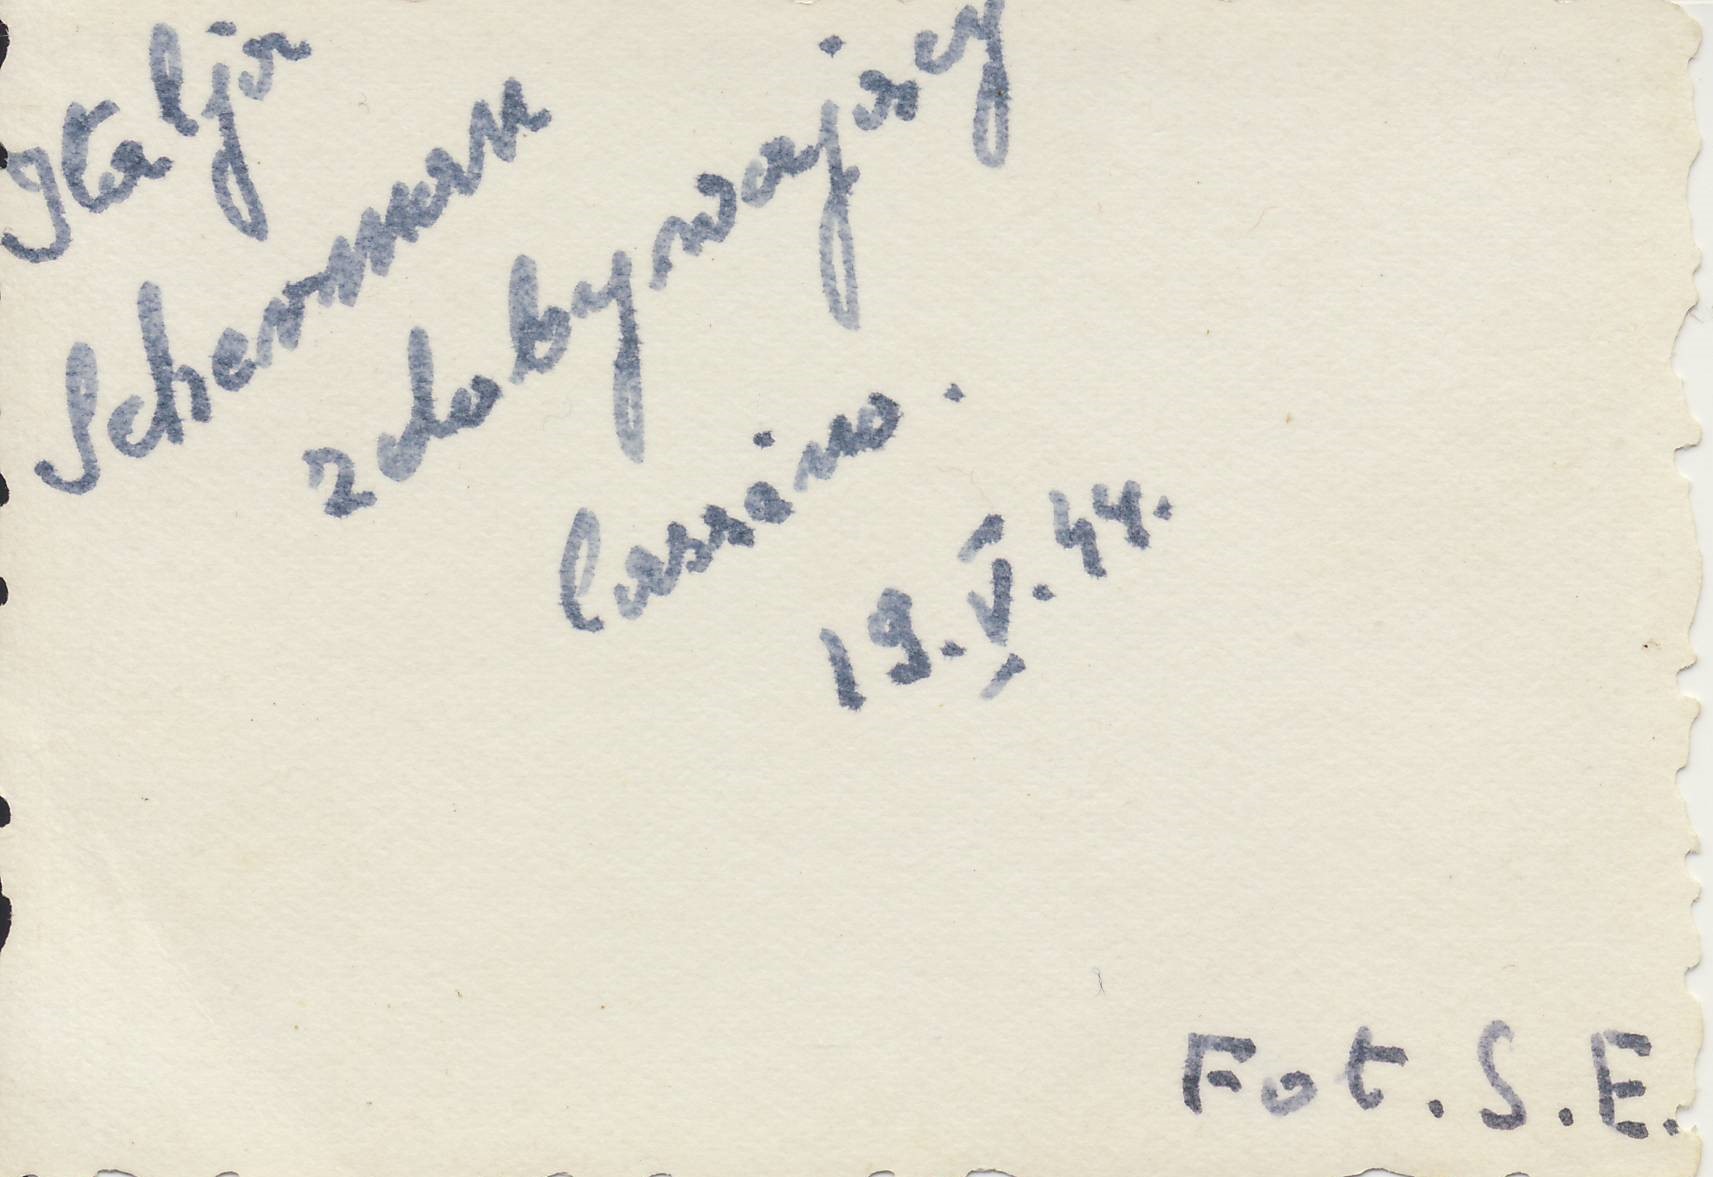 Italja
Schermann
zdobywający
Cassino.
19.V.44.
Fot. S. E.